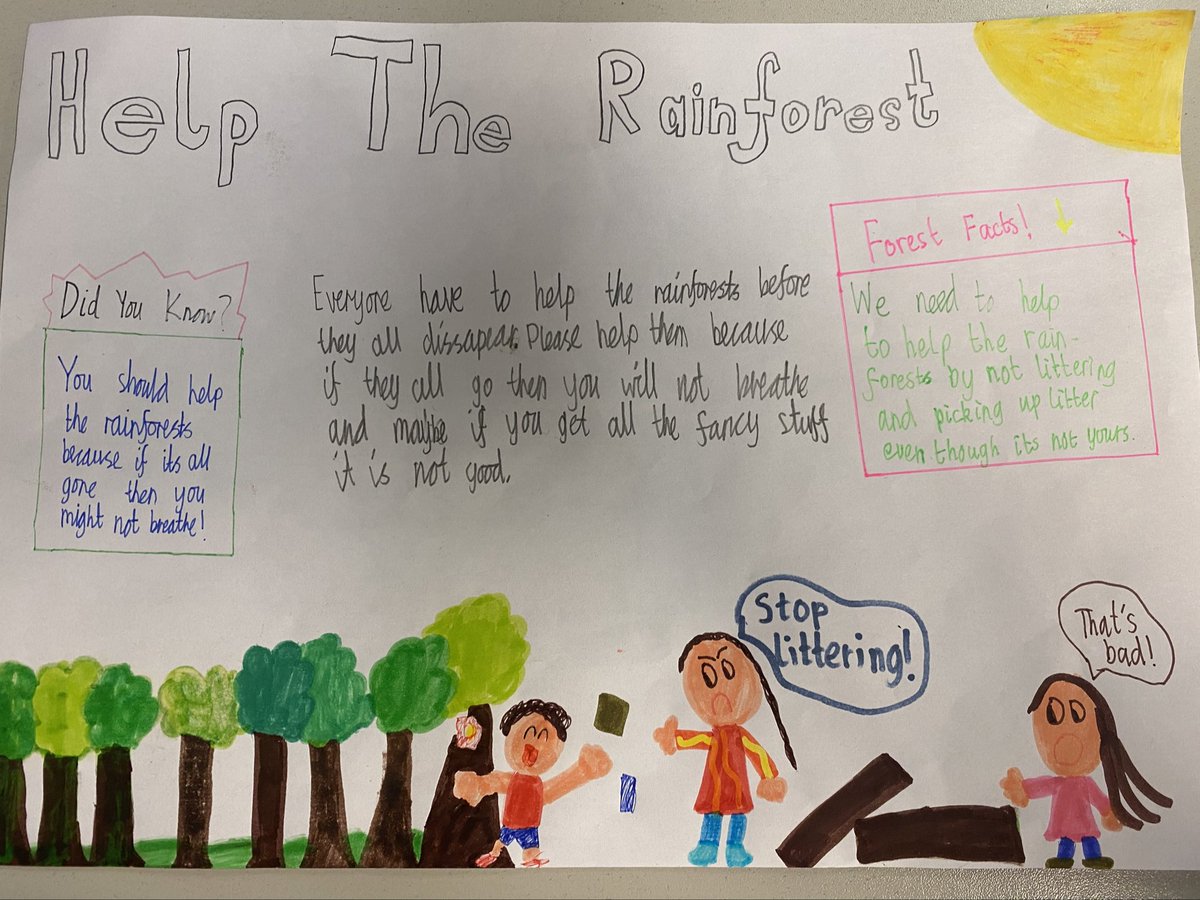 Help The Rainforest
Did You Know?
You should help
the rainforests
because if its all
gone then you
might not breathe!
Everyone have to help the rainforests before
they all dissapear. Please help them because
if they all go then you will not breathe
and maybe if you get all the fancy stuff
it is not good.
Forest Facts!
We need to help
to help the rain-
forests by not littering
and picking up litter
even though its not yours.
Stop
littering!
That's
bad!